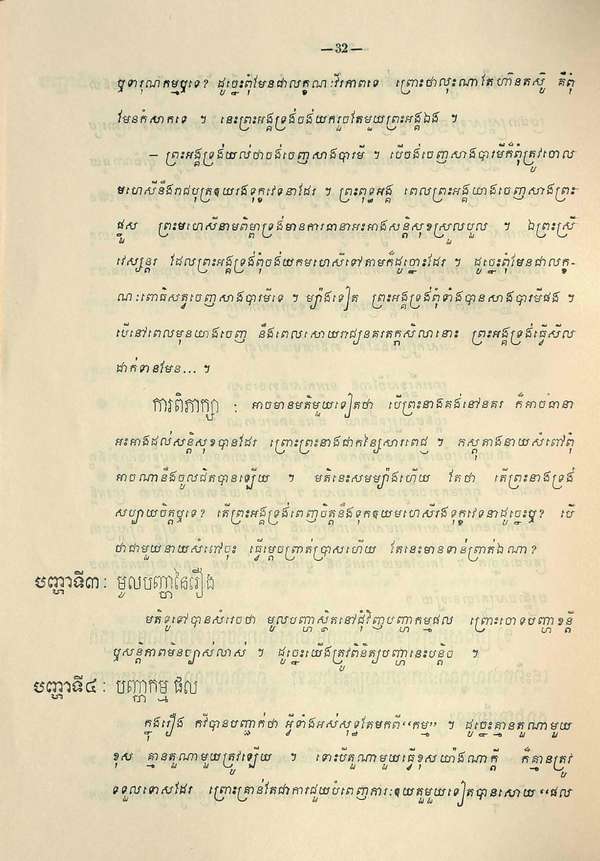 — 32 —
ឬទារុណកម្មឬទេ? ដូច្នេះពុំមែនជាលក្ខណៈវីរភាពទេ ព្រោះថាលុះណាតែហ៊ានតស៊ូ គឺពុំ
មែនកំសាកទេ ។ នេះព្រះអង្គទ្រង់ចង់យករួចតែមួយព្រះអង្គឯង ។
— ព្រះអង្គទ្រង់យល់ថាចង់ចេញសាងបារមី ។ បើចង់ចេញសាងបារមីក៏ពុំត្រូវចោល
មហេសីនឹងរាជបុត្រឲ្យរងទុក្ខវេទនាដែរ ។ ព្រះពុទ្ធអង្គ ពេលព្រះអង្គយាងចេញសាងព្រះ
ផ្នួស ព្រះមហេសីនាមពិម្ពាទ្រង់មានការធានាអះអាងសន្តិសុខស្រួលបួល ។ ឯព្រះស្រី
វេស្សន្តរ ដែលព្រះអង្គទ្រង់ពុំចង់យកមហេសីទៅតាមក៏ដូច្នោះដែរ ។ ដូច្នេះពុំមែនជាលក្ខ-
ណៈពោធិសត្វចេញសាងបារមីទេ ។ ម្យ៉ាងទៀត ព្រះអង្គទ្រង់ពុំទាំងបានសាងបារមីផង ។
បើនៅពេលមុនយាងចេញ នឹងពេលសោយរាជ្យនគរតក្កសិលានោះ ព្រះអង្គទ្រង់ធ្វើសីល
ដាក់ទានមែន... ។
ការពិភាក្សា : អាចមានមតិមួយទៀតថា បើព្រះនាងគង់នៅនគរ ក៏អាចធានា
អះអាងដល់សន្តិសុខបានដែរ ព្រោះព្រះនាងជាកន្យៃសារពេជ្ញ ។ កស្តុតាងនាយសំពៅពុំ
អាចណានឹងចូលជិតបានឡើយ ។ មតិនេះសមម្យ៉ាងហើយ តែថា តើព្រះនាងទ្រង់
សប្បាយចិត្តឬទេ? តើព្រះអង្គទ្រង់ពេញចិត្តនឹងទុកឲ្យមហេសីរងទុក្ខវេទនាដូច្នេះឬ? បើ
ថាជាមួយនាយសំពៅចុះ ធ្វើម្តេចព្រាត់ប្រាសហើយ តែនេះមានទាន់ព្រាត់ឯណា?
បញ្ហាទី៣: មូលបញ្ហានៃរឿង
មតិទូទៅបានសំរេចថា មូលបញ្ហាស្ថិតនៅជុំវិញបញ្ហាកម្មផល ព្រោះចោទបញ្ហាខន្តី
ឬសន្តិភាពមិនច្បាស់លាស់ ។ ដូច្នេះយើងត្រូវពិនិត្យបញ្ហានេះបន្តិច ។
បញ្ហាទី៤: បញ្ហាកម្ម ផល
ក្នុងរឿង កវីបានបញ្ជាក់ថា អ្វីទាំងអស់សុទ្ធតែមកពី“កម្ម” ។ ដូច្នេះគ្មានតួណាមួយ
ខុស គ្មានតួណាមួយត្រូវឡើយ ។ ទោះបីតួណាមួយធ្វើខុសយ៉ាងណាក្តី ក៏គ្មានត្រូវ
ទទួលទោសដែរ ព្រោះគ្រាន់តែជាការជួយបំពេញការៈឲ្យតួមួយទៀតបានសោយ “ផល